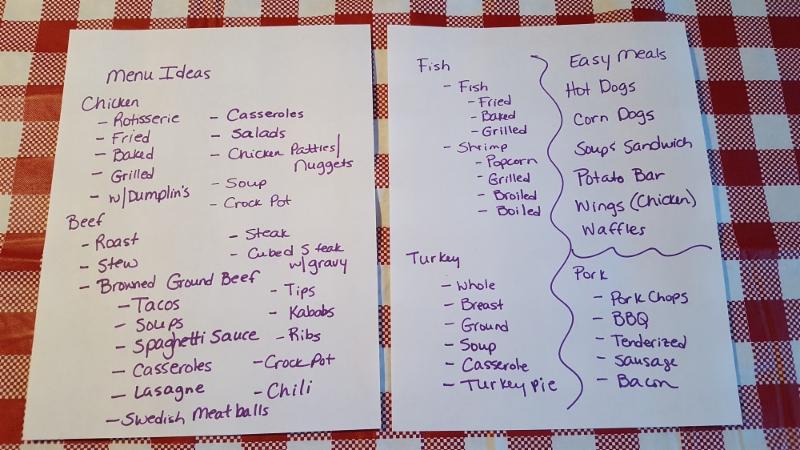 Menu Ideas
Chicken
- Rotisserie
- Fried
- Baked
- Grilled
- w/Dumplin's
- Casseroles
- Salads
- Chicken Patties/
Nuggets
- Soup
- Crock Pot
Beef
- Roast
- Stew
- Browned Ground Beef
- Tacos
- Soups
- Spaghetti Sauce
- Casseroles
- Lasagne
- Swedish Meatballs
- Steak
- Cubed Steak
w/gravy
- Tips
- Kabobs
- Ribs
- Crock Pot
- Chili
Fish
- Fish
- Fried
- Baked
- Grilled
- Shrimp
- Popcorn
- Grilled
- Broiled
- Boiled
Turkey
- Whole
- Breast
- Ground
- Soup
- Casserole
- Turkey pie
Easy Meals
Hot Dogs
Corn Dogs
Soup & Sandwich
Potato Bar
Wings (Chicken)
Waffles
Pork
- Pork Chops
- BBQ
- Tenderized
- Sausage
- Bacon